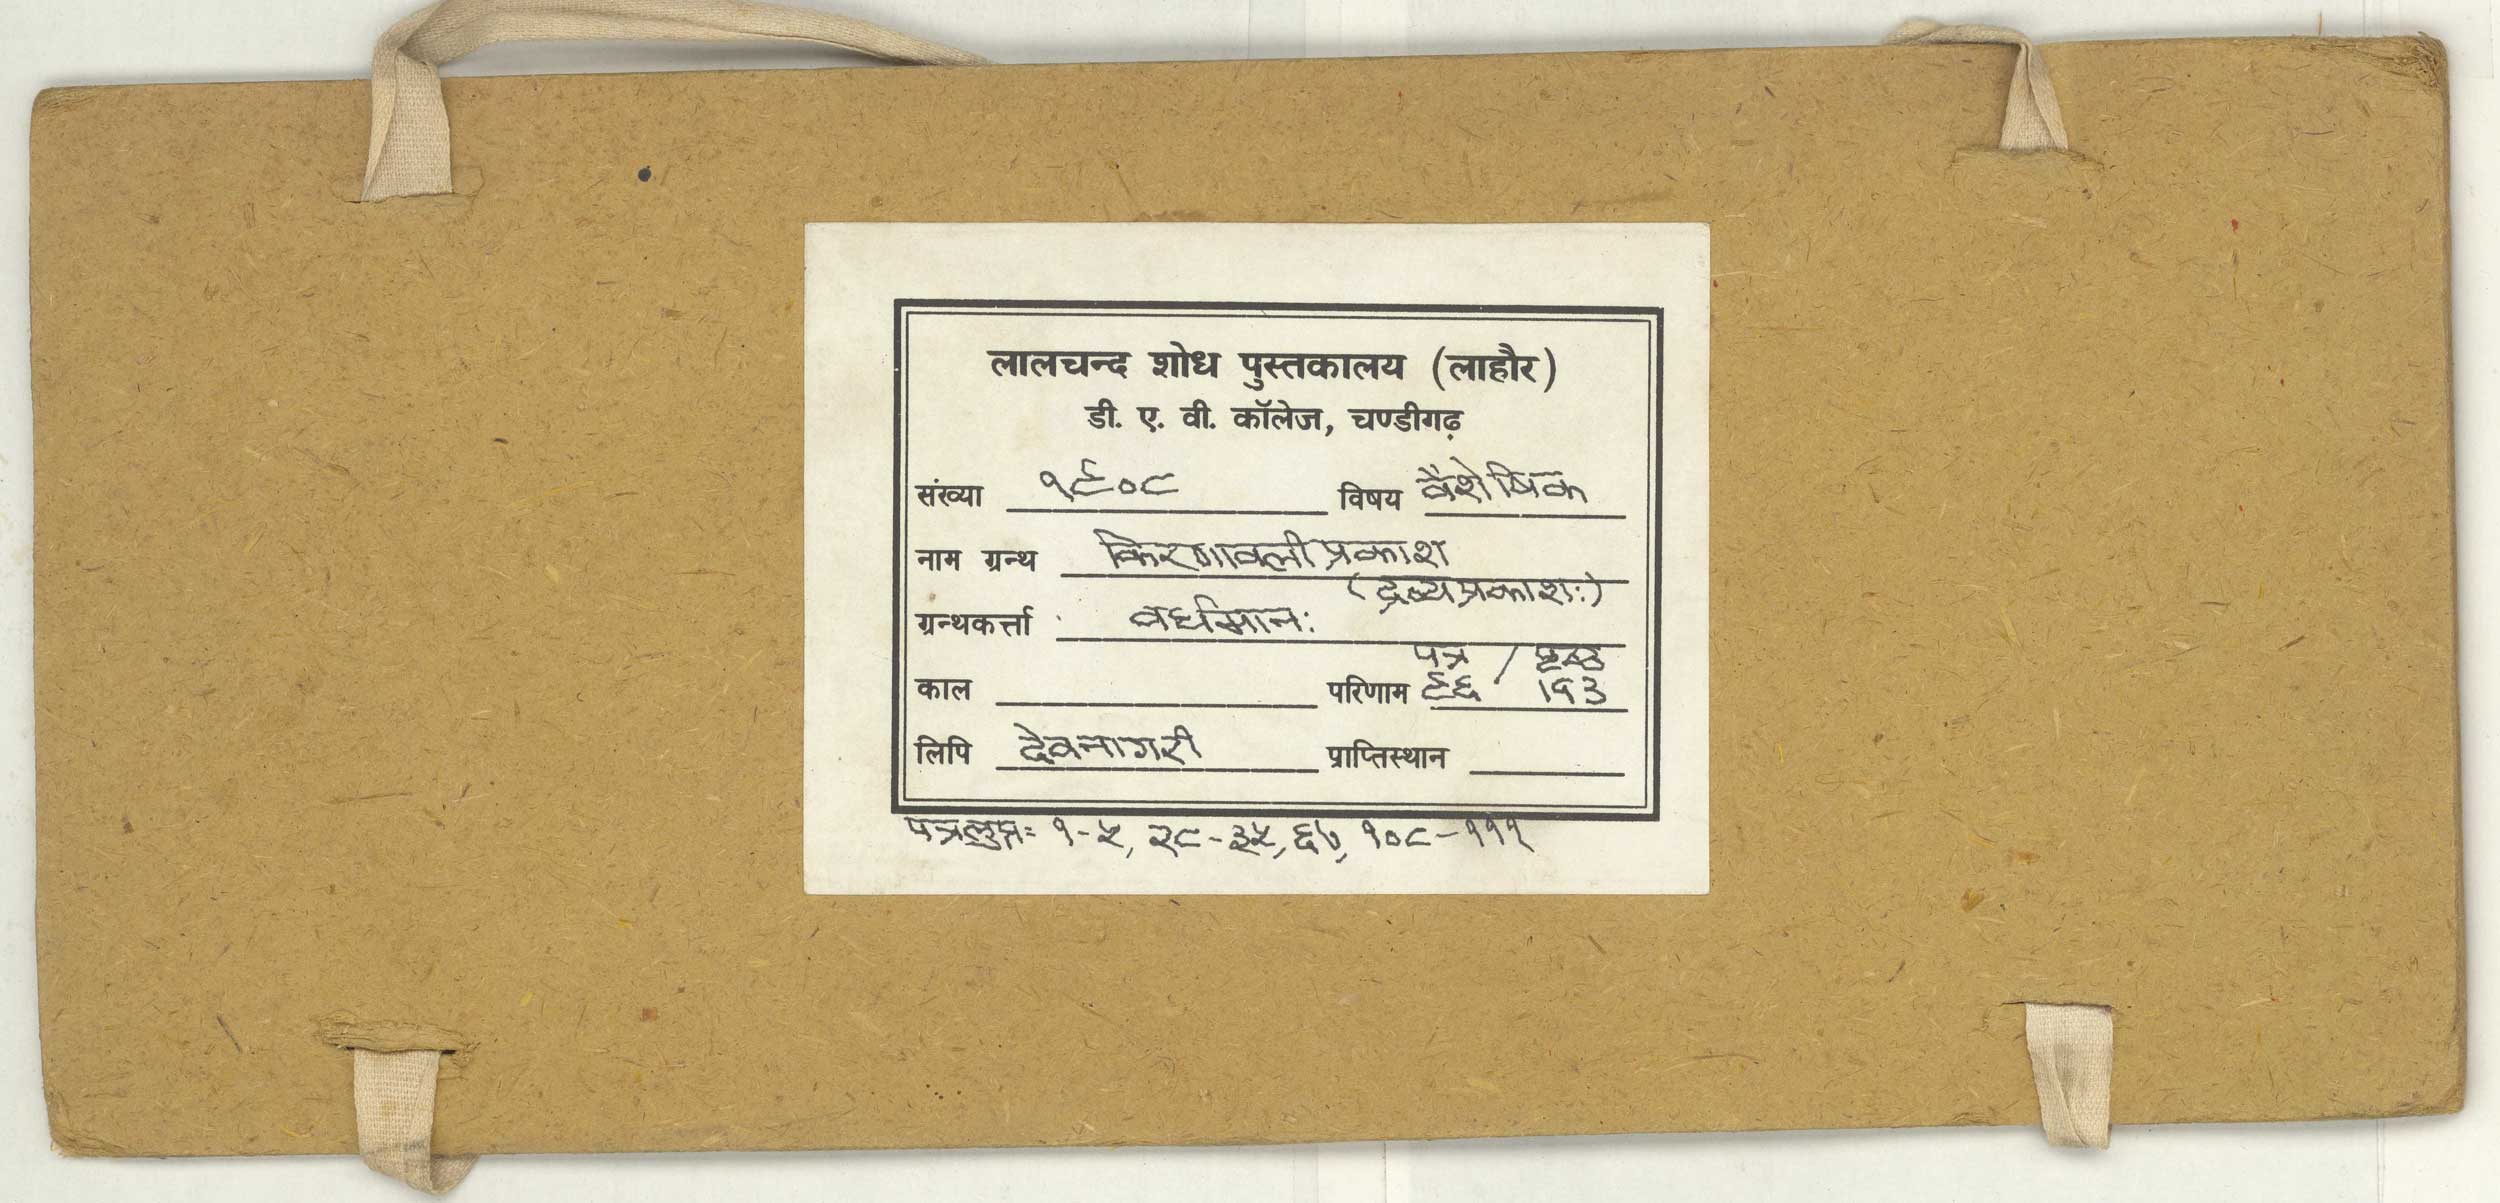 लालचन्द शोध पुस्तकालय (लाहौर)
डी. ए. वी. कॉलेज, चण्डीगढ़
संख्या १९०८ विषय वैशेषिक
नाम ग्रन्थ किरणावली प्रकाश
(द्रव्यप्रकाशः)
ग्रन्थकर्त्ता वर्धमानः
पत्र / पृष्ठ
काल परिणाम ९६ १९३
लिपि देवनागरी प्राप्तिस्थान
पत्रलुप्तः १-५, २८-३५, ६७, १०८-१११